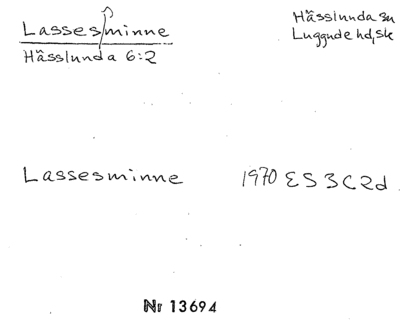 Lassesminne
Hässlunda 6:2
Hässlunda sn
Luggude hd, Sk
Lassesminne 1970 ES 3C2d
Nr 13694